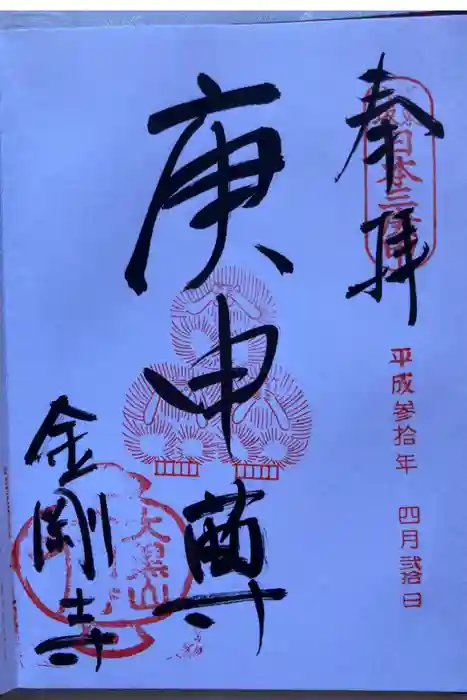 奉拝
日本三庚申
平成参拾年 四月弐拾日
庚申尊
金剛寺
大黒山